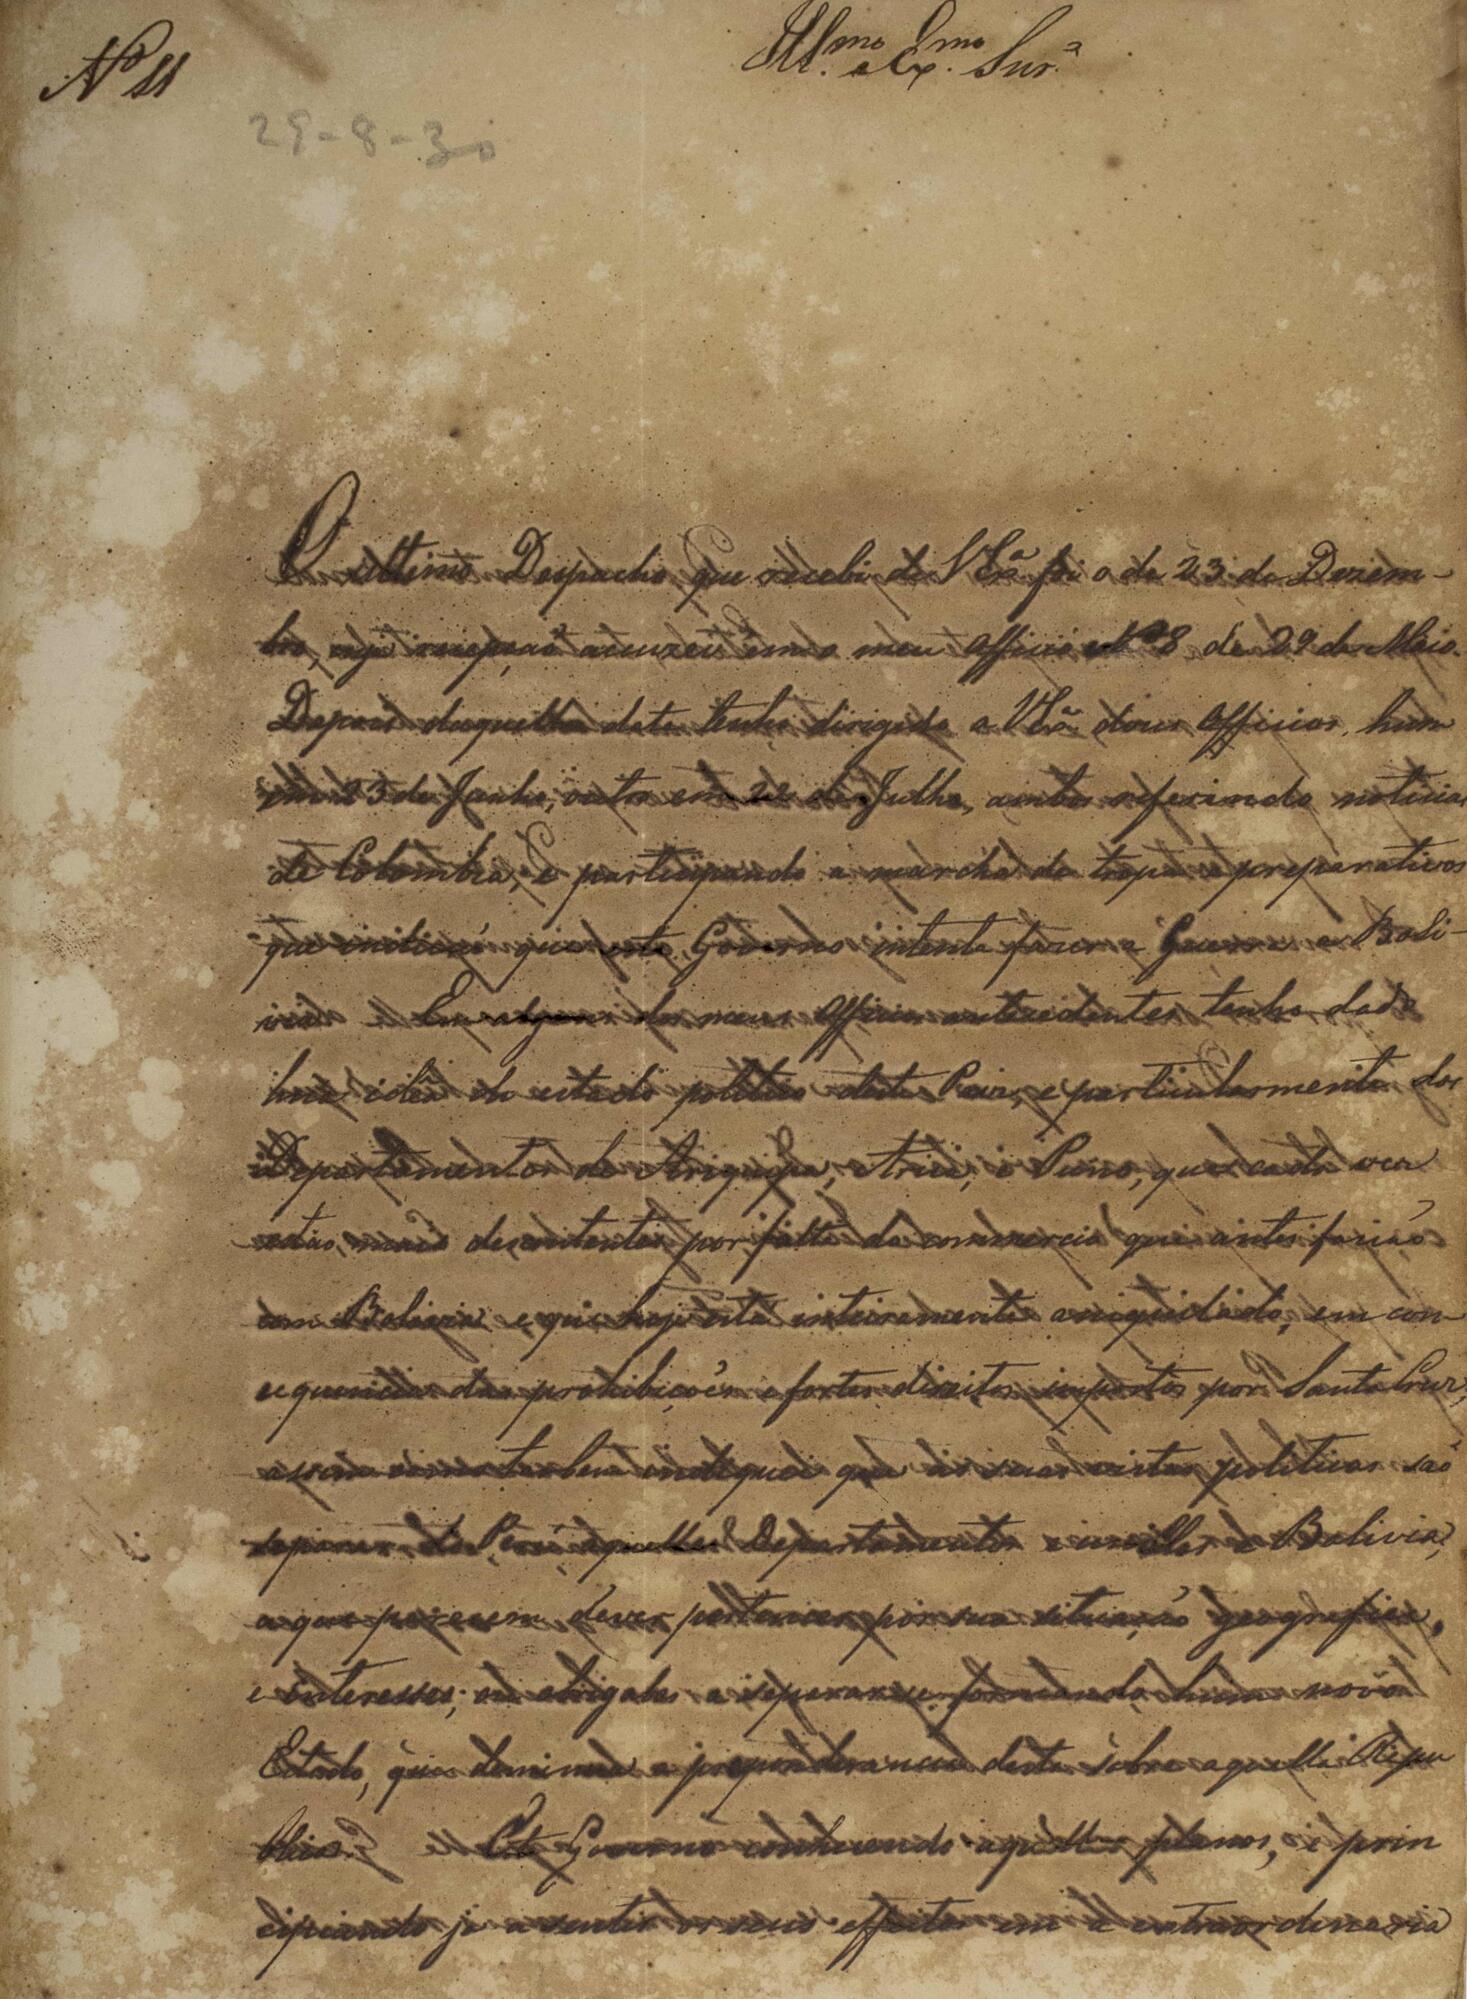 Nº 11
Illmo e Exmo Snr.
29-8-30
O ultimo Despacho que recebi de VExª foi o de 23 de Dezem-
bro, cuja recepçaõ accuzei em o meu Officio Nº 8 de 29 de Maio.
Depois daquella data tenho dirigido a VExª dous Officios, hum
em 23 de Junho, outro em 22 de Julho, ambos referindo noticias
de Colombia, e participando a marcha da tropa e preparativos
que indicaõ que este Governo intenta fazer a Guerra a Boli-
via. Em alguns dos meus Officios antecedentes tenho dado
huã idéa do estado politico deste Paiz, e particularmente dos
Departamentos de Ariquipa, Arica, e Puno, que cada vez
estaõ mais descontentes por falta do commercio que antes faziaõ
com Bolivia e que hoje está inteiramente aniquilado, em con-
sequencia das prohibiçoẽs e fortes direitos impostos por Santa Cruz,
assim como tambem indiquei que as suas vistas politicas saõ
separar do Perú aquelles Departamentos e unillos a Bolivia,
a que parecem dever pertencer por sua situaçaõ geografica,
e interesses; ou obrigalos a separarse formando hum novo
Estado, que diminua a preponderancia desta sobre aquella Repu
blica. Este Governo conhecendo aquelles planos, e prin
cipiando já a sentir os seus effeitos em a extraordinaria